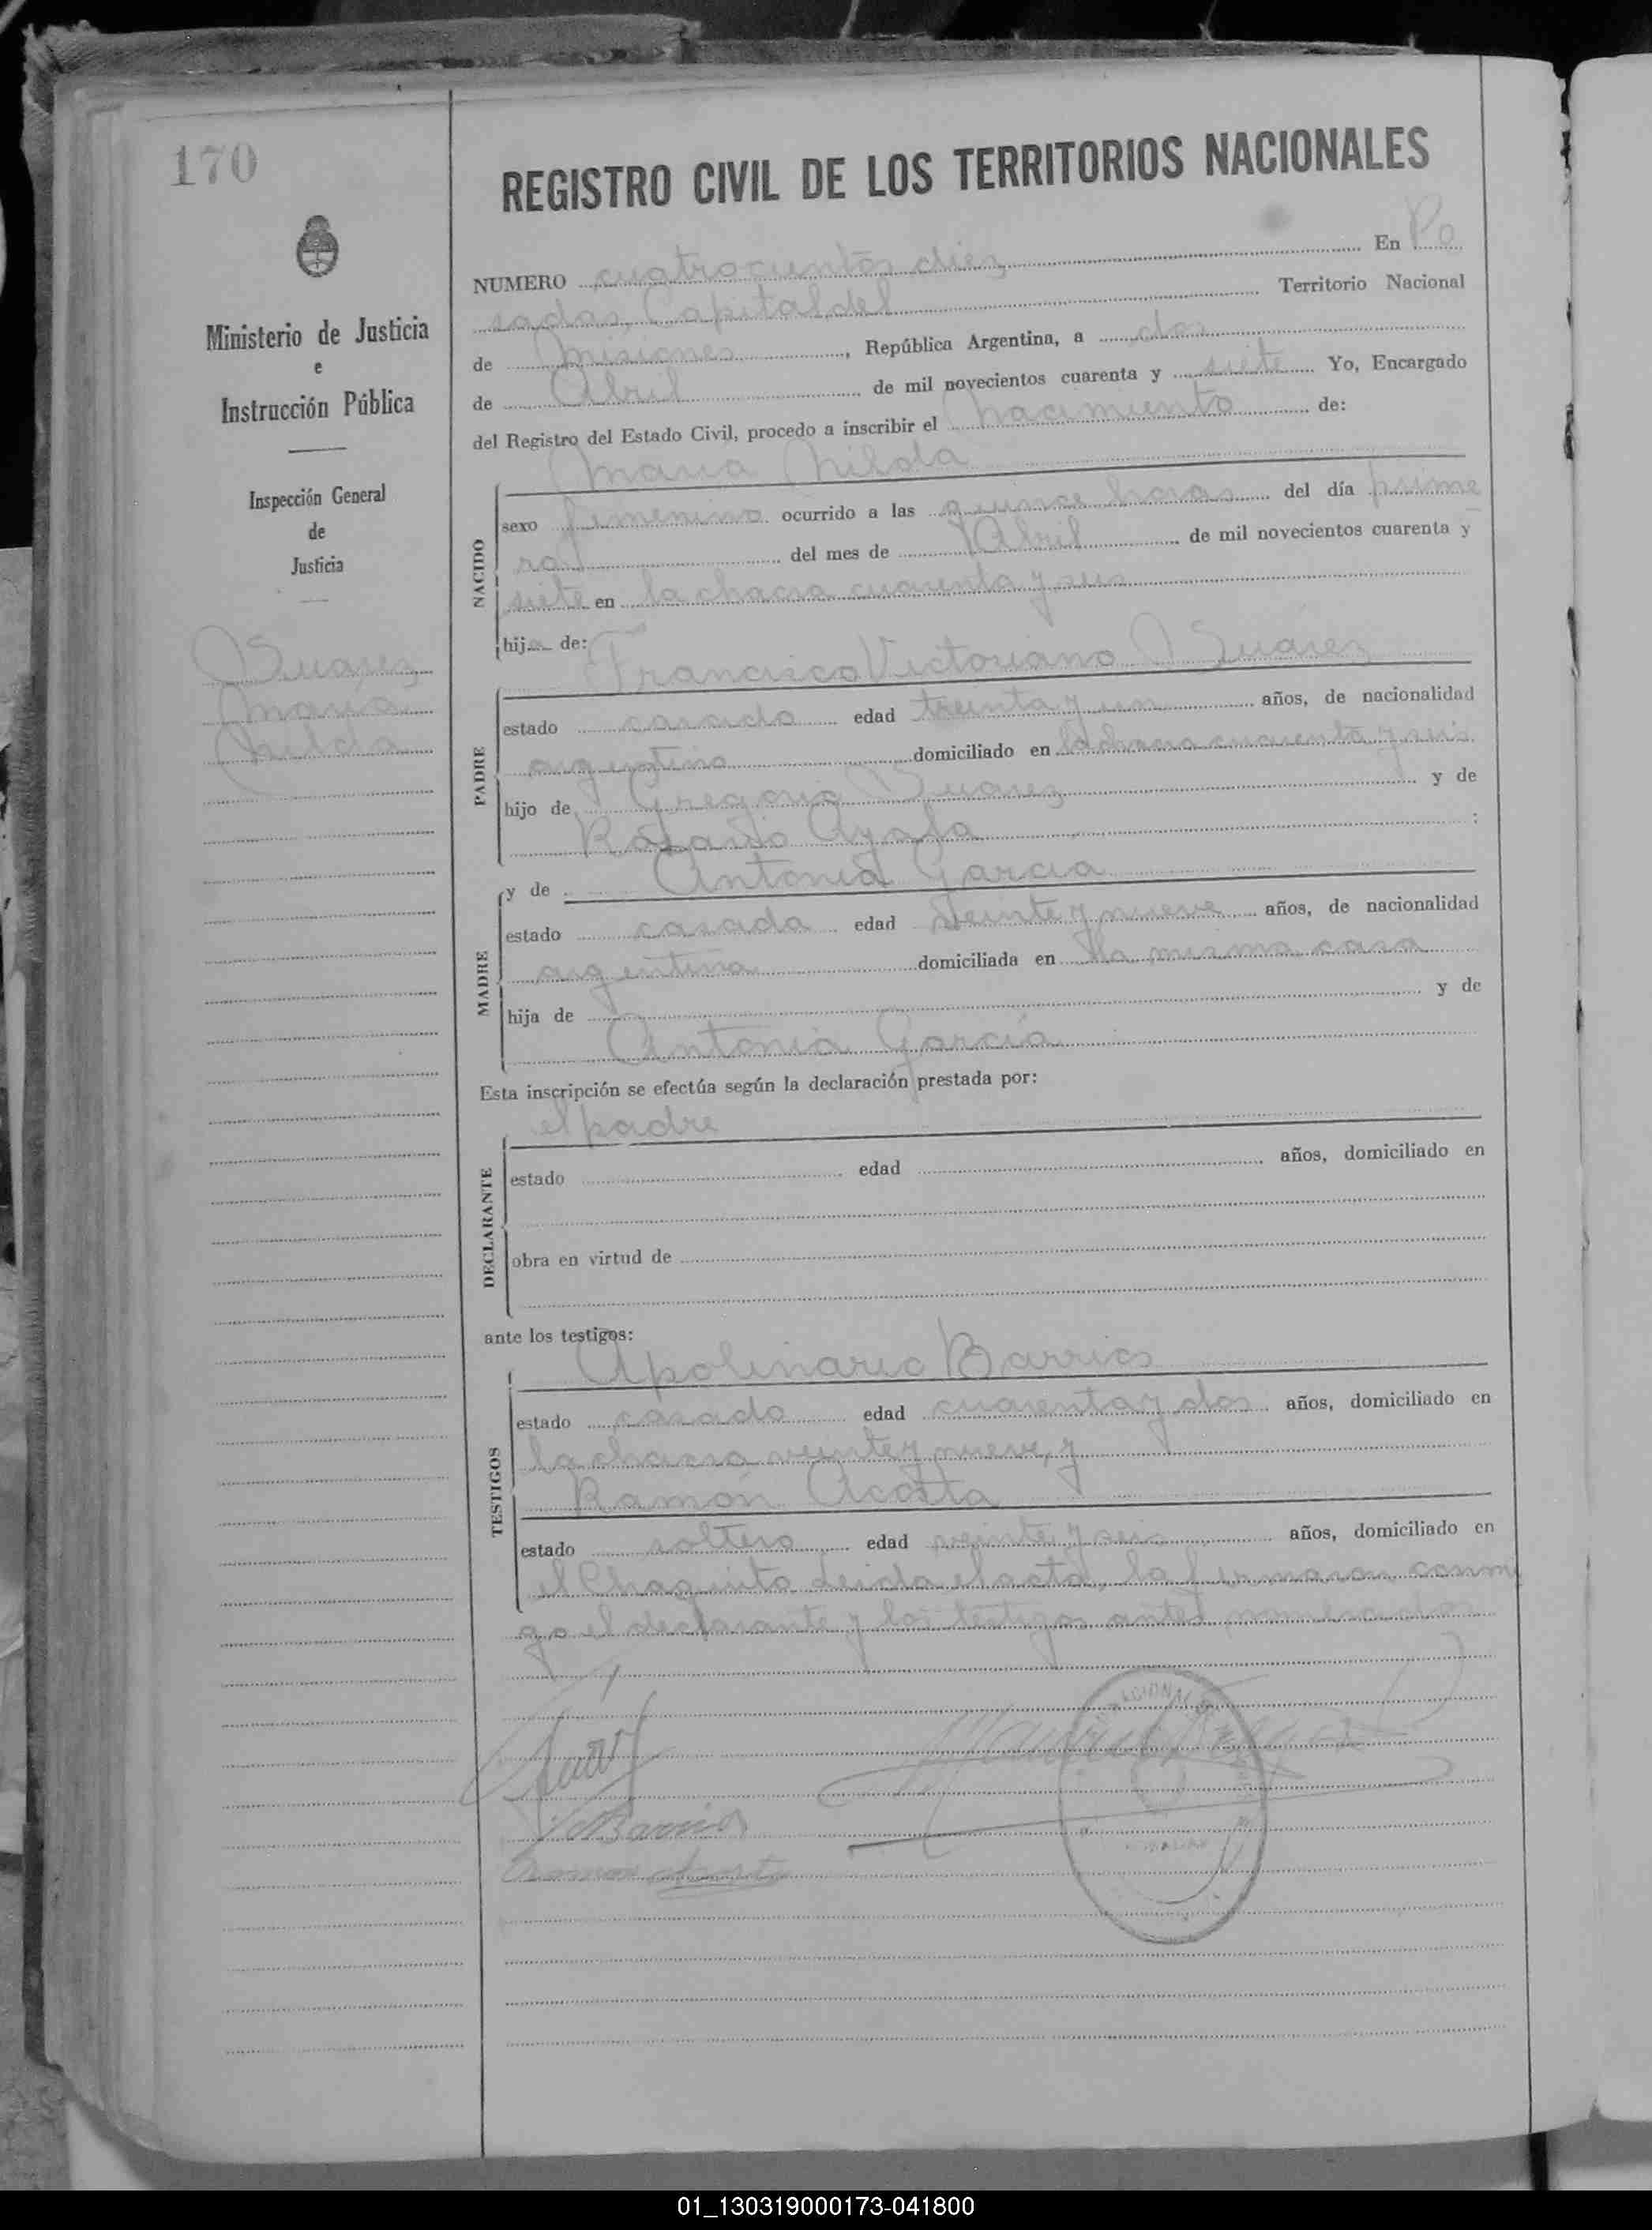 170
REGISTRO CIVIL DE LOS TERRITORIOS NACIONALES
Ministerio de Justicia
e
Instrucción Pública
Inspección General
de
Justicia
Suarez
Maria
Nilda
NUMERO cuatrocientos diez En Po
sadas, Capital del Territorio Nacional
de Misiones, República Argentina, a dos
de Abril de mil novecientos cuarenta y siete Yo, Encargado
del Registro del Estado Civil, procedo a inscribir el nacimiento de:
Maria Nilda
NACIDO
sexo femenino ocurrido a las quince horas del día prime
ro del mes de Abril de mil novecientos cuarenta y
siete en la chacra cuarenta y seis
hija de: Francisco Victoriano Suárez
PADRE
estado casado edad treinta y un años, de nacionalidad
argentino domiciliado en la chacra cuarenta y seis
hijo de Gregorio Suarez y de
Ayala :
y de Antonia Garcia
MADRE
estado casada edad veinte y nueve años, de nacionalidad
argentina domiciliada en la misma casa
hija de y de
Antonia Garcia
Esta inscripción se efectúa según la declaración prestada por:
el padre
DECLARANTE
estado edad años, domiciliado en
obra en virtud de
ante los testigos:
Apolinario Barrios
TESTIGOS
estado casado edad cuarenta y dos años, domiciliado en
la chacra veinte y nueve, y
Ramón Acosta
estado soltero edad veinte y seis años, domiciliado en
el Chaquito Leida el acta, la firmaron conmi
go el declarante y los testigos antes nombrados
Barrios
Ramon Acosta
01_130319000173-041800